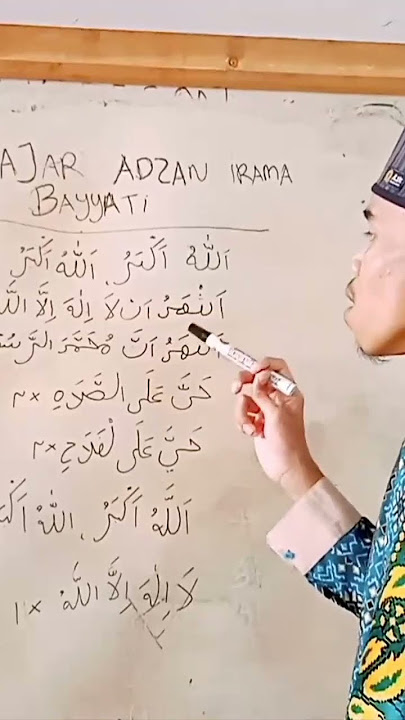 AJAR ADZAN IRAMA
BAYYATI
اَللّٰهُ اَكْبَرُ . اَللّٰهُ اَكْبَرُ
اَشْهَدُ اَنْ لَا اِلٰهَ اِلَّا اللّٰ
اَشْهَدُ اَنَّ مُحَمَّدَ الرَّسُ
حَيَّ عَلَى الصَّلَاهِ ×٢
حَيَّ عَلَى لْفَلَاحِ ×٢
اَللّٰهُ اَكْبَرُ . اللّٰهُ اَكْبَ
لَا اِلٰهَ اِلَّا اللّٰهُ ×١